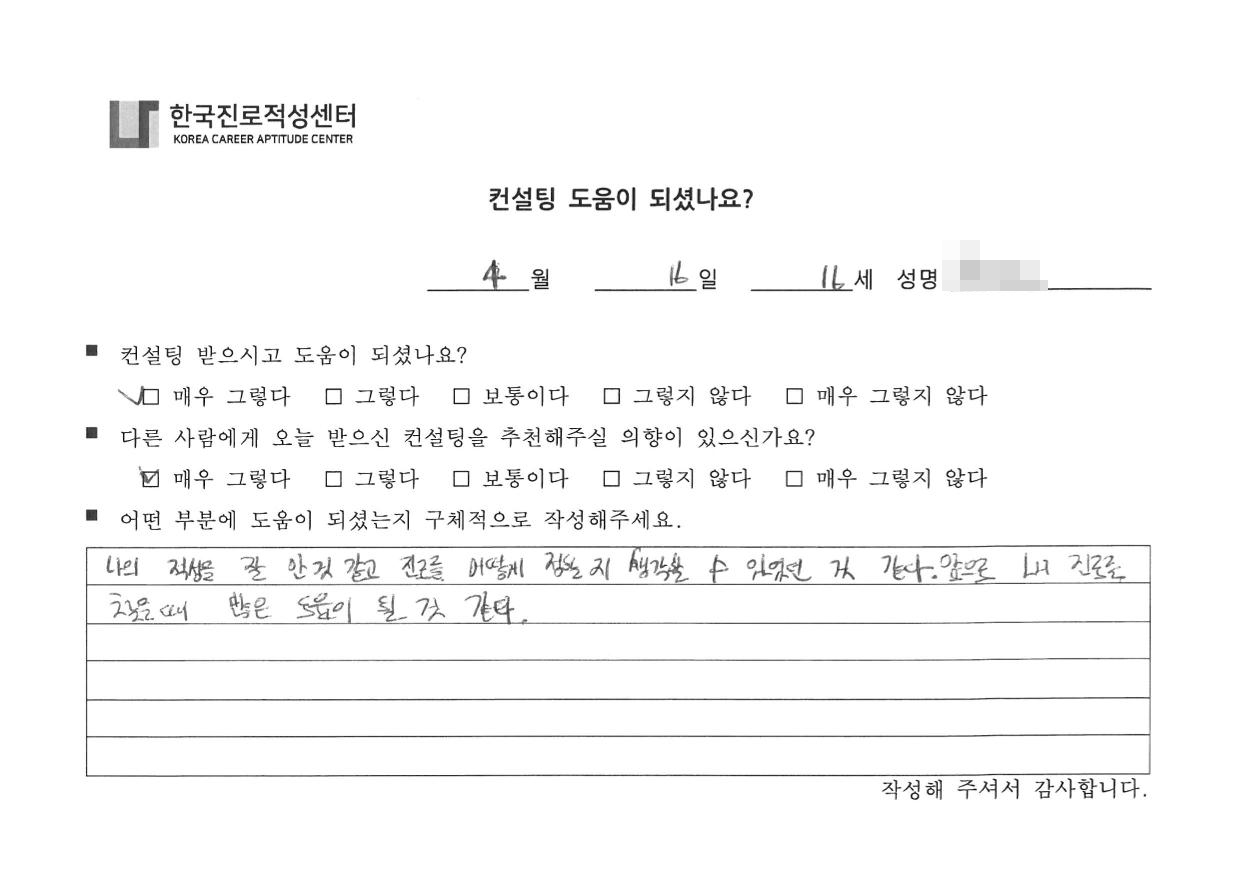 한국진로적성센터
KOREA CAREER APTITUDE CENTER
컨설팅 도움이 되셨나요?
4 월 16 일 16 세 성명
■ 컨설팅 받으시고 도움이 되셨나요?
☑ 매우 그렇다 □ 그렇다 □ 보통이다 □ 그렇지 않다 □ 매우 그렇지 않다
■ 다른 사람에게 오늘 받으신 컨설팅을 추천해주실 의향이 있으신가요?
☑ 매우 그렇다 □ 그렇다 □ 보통이다 □ 그렇지 않다 □ 매우 그렇지 않다
■ 어떤 부분에 도움이 되셨는지 구체적으로 작성해주세요.
나의 적성을 잘 안 것 같고 진로를 어떻게 정할 지 생각할 수 있었던 것 같다. 앞으로 내 진로를
찾을 때 많은 도움이 될 것 같다.
작성해 주셔서 감사합니다.